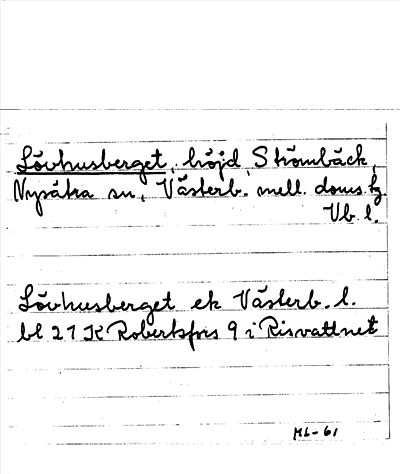 Lövhusberget, höjd, Strömbäck,
Nysätra sn, Västerb. mell. doms. tg.
Vb l.
Lövhusberget ek Västerb. l.
bl 21 K Robertsfors 9 i Risvattnet
ML-61